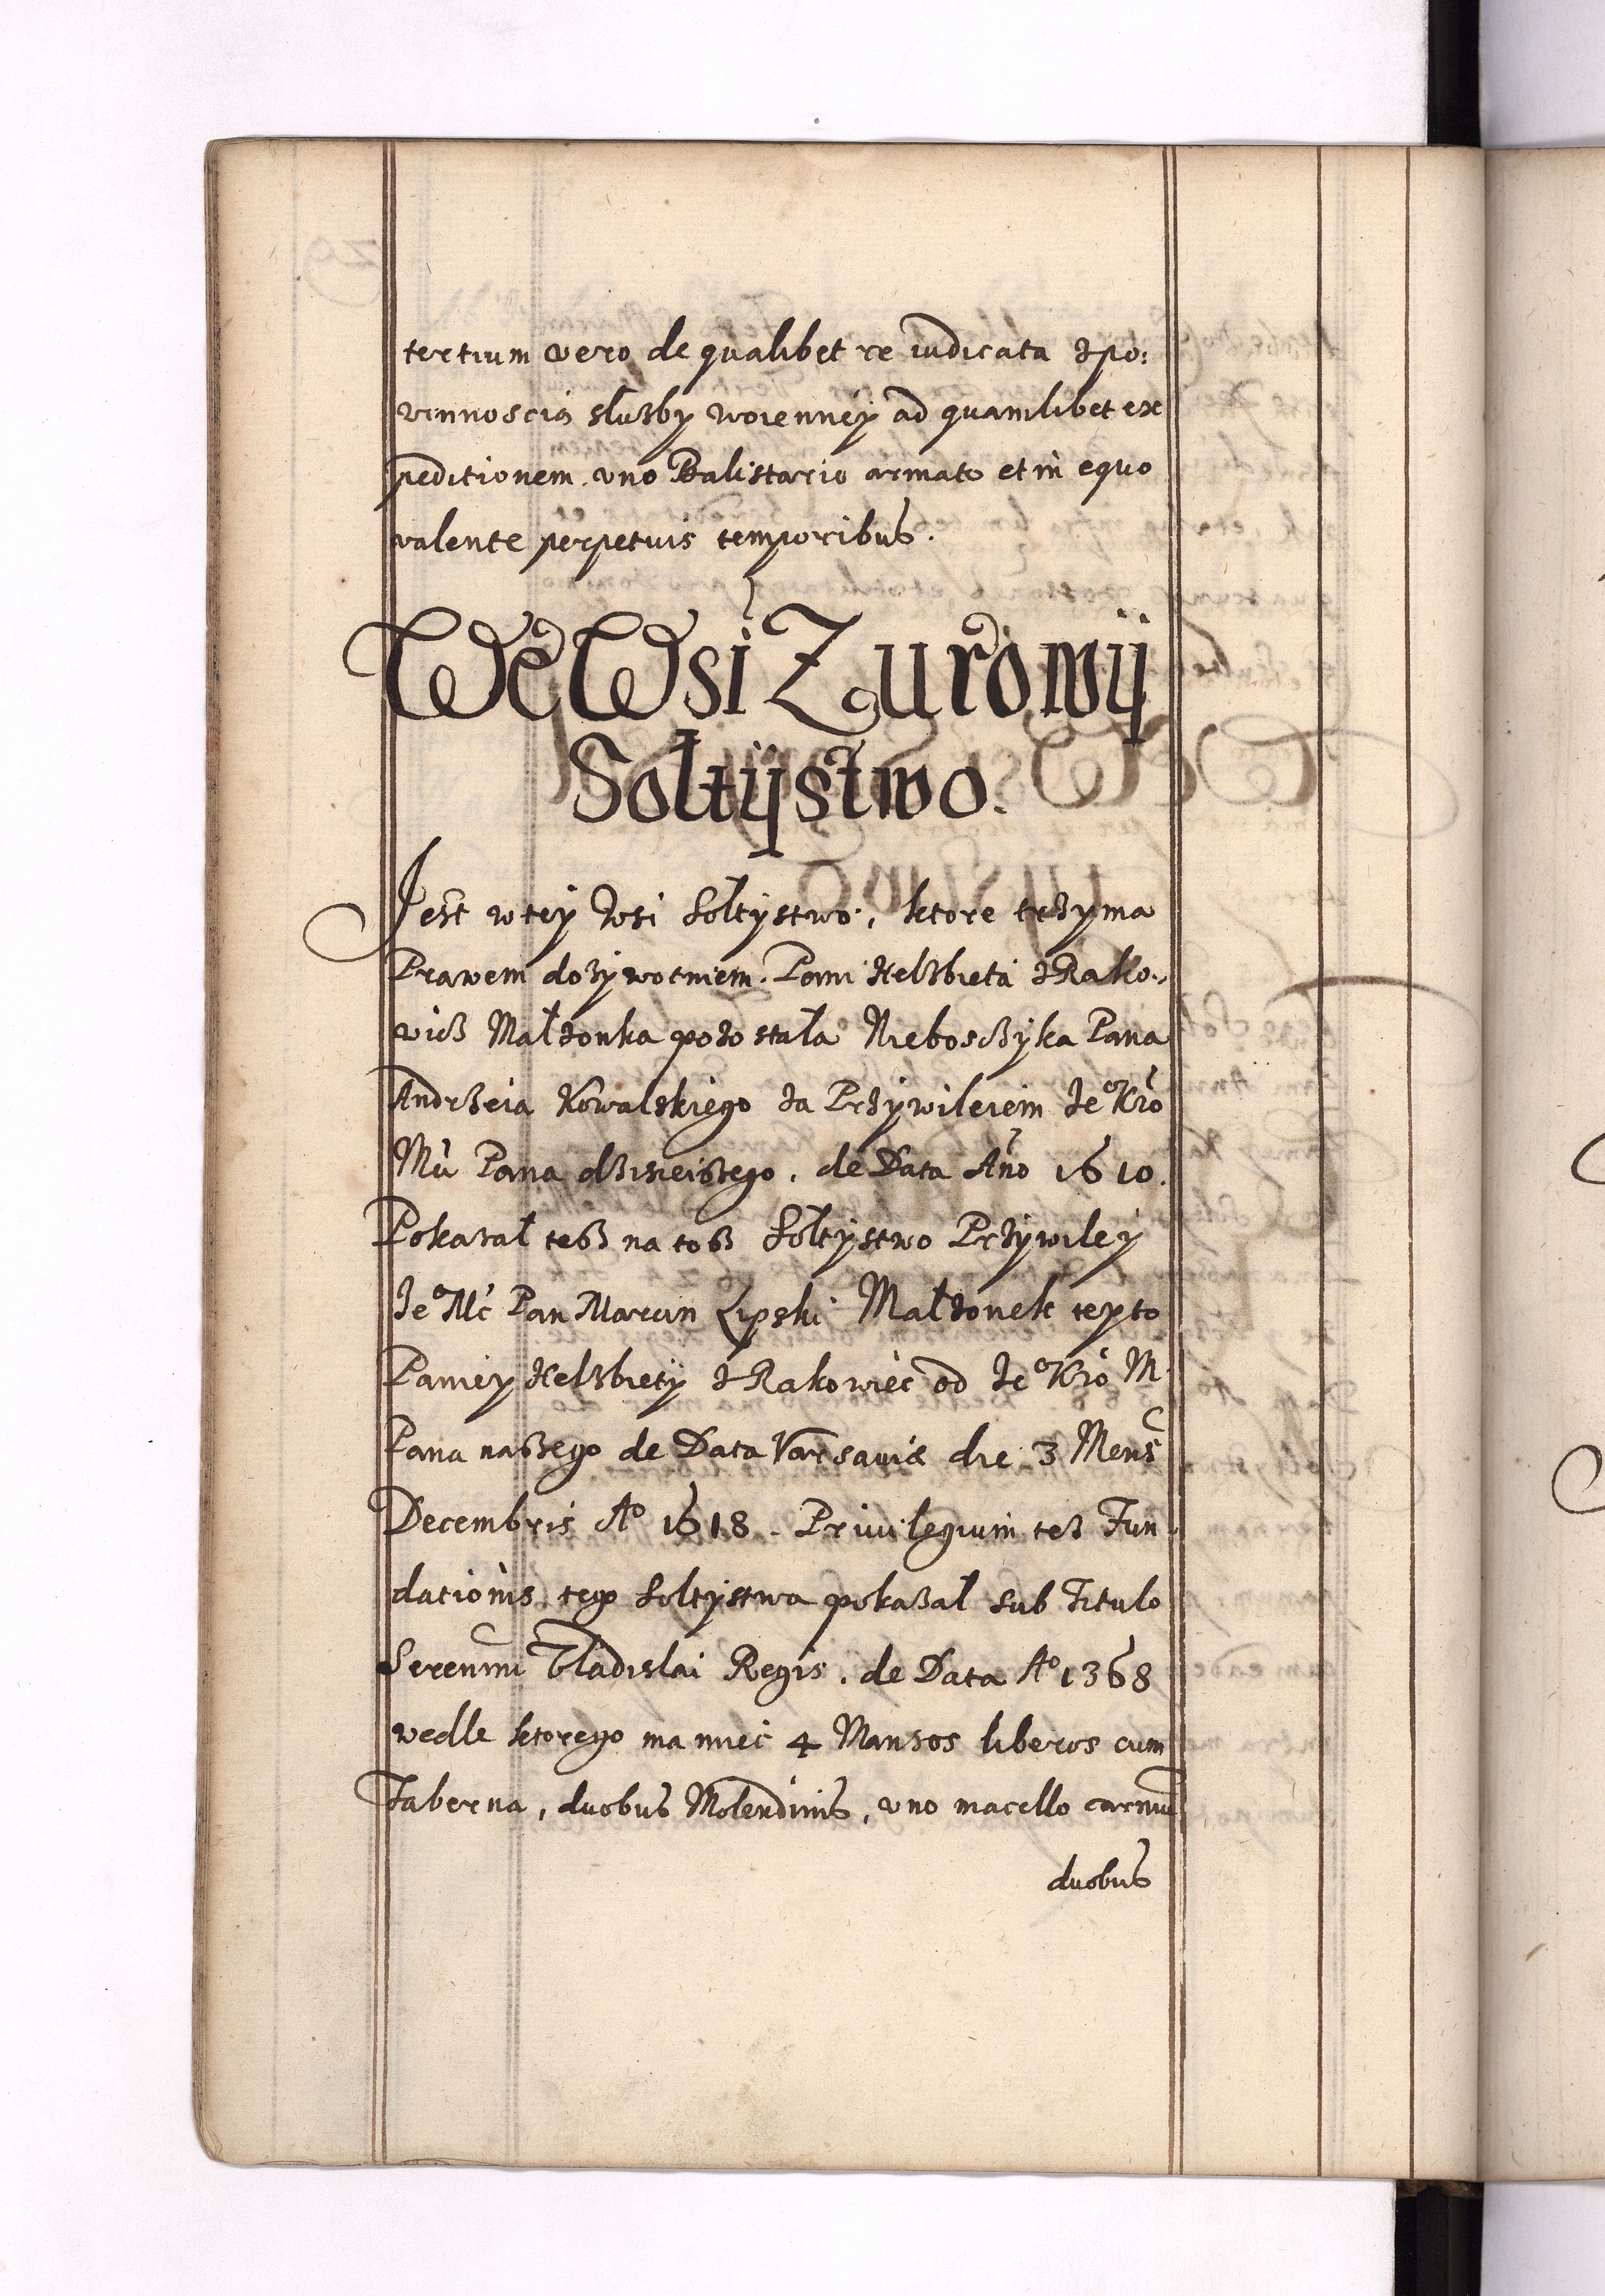 tertium vero de qualibet re iudicata z po:
vinnoscią słuzby woienney ad quamlibet ex
peditionem uno Balistario armato et in equo
valente perpetuis temporibus.
We Wsi Zuromij
Sołtijstwo.
Jest w tey Wsi Sołtystwo, ktore trzyma
Prawem dozywotniem Pani Helzbieta z Rako-
wicz Małzonka pozostała Nieboszyka Pana
Andrzeia Kowalskiego za Przywileiem Je° Kro
Mci Pana dzisieiszego. de Data Año 1610.
Pokazał tesz na tosz Sołtystwo Przywiley
Je° Mc Pan Marcin Lipski Małzonek teyto
Paniey Helzbiety z Rakowiec od Je° Kro M
Pana naszego de Data Varsauiæ die 3 Mens
Decembris A° 1618. Priuilegium tez Fun
dationis tego Sołtystwa pokazał sub Titulo
Serenmi Vladislai Regis. de Data A° 1368
wedle ktorego ma miec 4 Mansos liberos cum
Taberna, duobus Molendinis, uno macello carniū
duobus